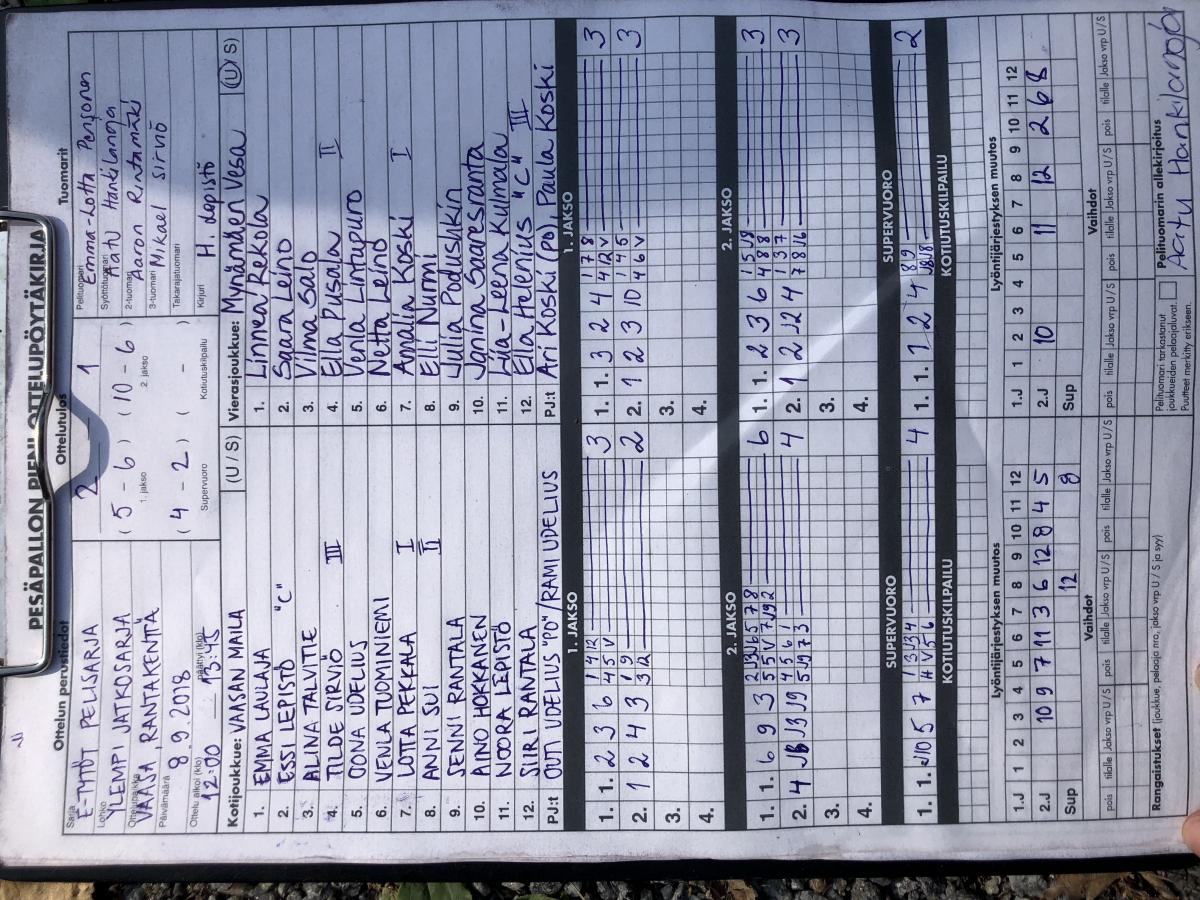 PESÄPALLON PIENI OTTELUPÖYTÄKIRJA
Ottelun perustiedot
Ottelutulos
Tuomarit
Sarja
E-TYTÖT PELISARJA
Lohko
YLEMPI JATKOSARJA
Ottelupaikka
VAASA, RANTAKENTTÄ
Päivämäärä
8.9.2018
Ottelu alkoi (klo)
12:00
päättyi (klo)
13:45
2 – 1
( 5 – 6 ) ( 10 – 6 )
1. jakso 2. jakso
( 4 – 2 ) ( – )
Supervuoro Kotiutuskilpailu
Pelituomari
Emma-Lotta
Syöttötuomari
Aatu Hankilanoja
2-tuomari
Aaron Rintamäki
3-tuomari
Mikael Sirviö
Takarajatuomari
Kirjuri
H. Lepistö
Kotijoukkue: VAASAN MAILA (U / S)
1. EMMA LAULAJA
2. ESSI LEPISTÖ "C"
3. ALINA TALVITIE
4. TILDE SIRVIÖ III
5. OONA UDELIUS
6. VENLA TUOMINIEMI
7. LOTTA PEKKALA I
8. ANNI SUI II
9. SENNI RANTALA
10. AINO HOKKANEN
11. NOORA LEPISTÖ
12. SIIRI RANTALA
PJ:t OUTI UDELIUS "PO" / RAMI UDELIUS
Vierasjoukkue: Mynämäen Vesa (U / S)
1. Linnea Rekola
2. Saara Leino
3. Vilma Salo
4. Ella Pusala II
5. Venla Lintupuro
6. Netta Leino
7. Amalia Koski I
8. Elli Nurmi
9. Julia Poduskin
10. Janina Saaresranta
11. Liia-Leena Kulmala
12. Ella Helenius "C" III
PJ:t Ari Koski (PO), Paula Koski
1. JAKSO
1. 1. 2 3 6 3
2. 1 2 4 3 2
3.
4.
1. JAKSO
1. 1. 3 2 4 3
2. 1 2 3 10 3
3.
4.
2. JAKSO
1. 1. 6 9 3 6
2. 4 4
3.
4.
2. JAKSO
1. 1. 2 3 6 3
2. 1 2 12 4 3
3.
4.
SUPERVUORO
1. 1. 5 7 4
SUPERVUORO
1. 1. 1 2 4 2
KOTIUTUSKILPAILU
KOTIUTUSKILPAILU
Lyöntijärjestyksen muutos
1 2 3 4 5 6 7 8 9 10 11 12
1.J
2.J 10 9 7 11 3 6 12 8 4 5
Sup 12 8
Lyöntijärjestyksen muutos
1 2 3 4 5 6 7 8 9 10 11 12
1.J
2.J 10 11 12 2 6 8
Sup
Vaihdot
pois tilalle Jakso vrp U / S pois tilalle Jakso vrp U / S pois tilalle Jakso vrp U / S
Vaihdot
pois tilalle Jakso vrp U / S pois tilalle Jakso vrp U / S pois tilalle Jakso vrp U / S
Rangaistukset (joukkue, pelaaja nro, jakso vrp U / S ja syy)
Pelituomari tarkastanut
joukkueiden pelaajaluvat.
Puutteet merkitty erikseen.
Pelituomarin allekirjoitus